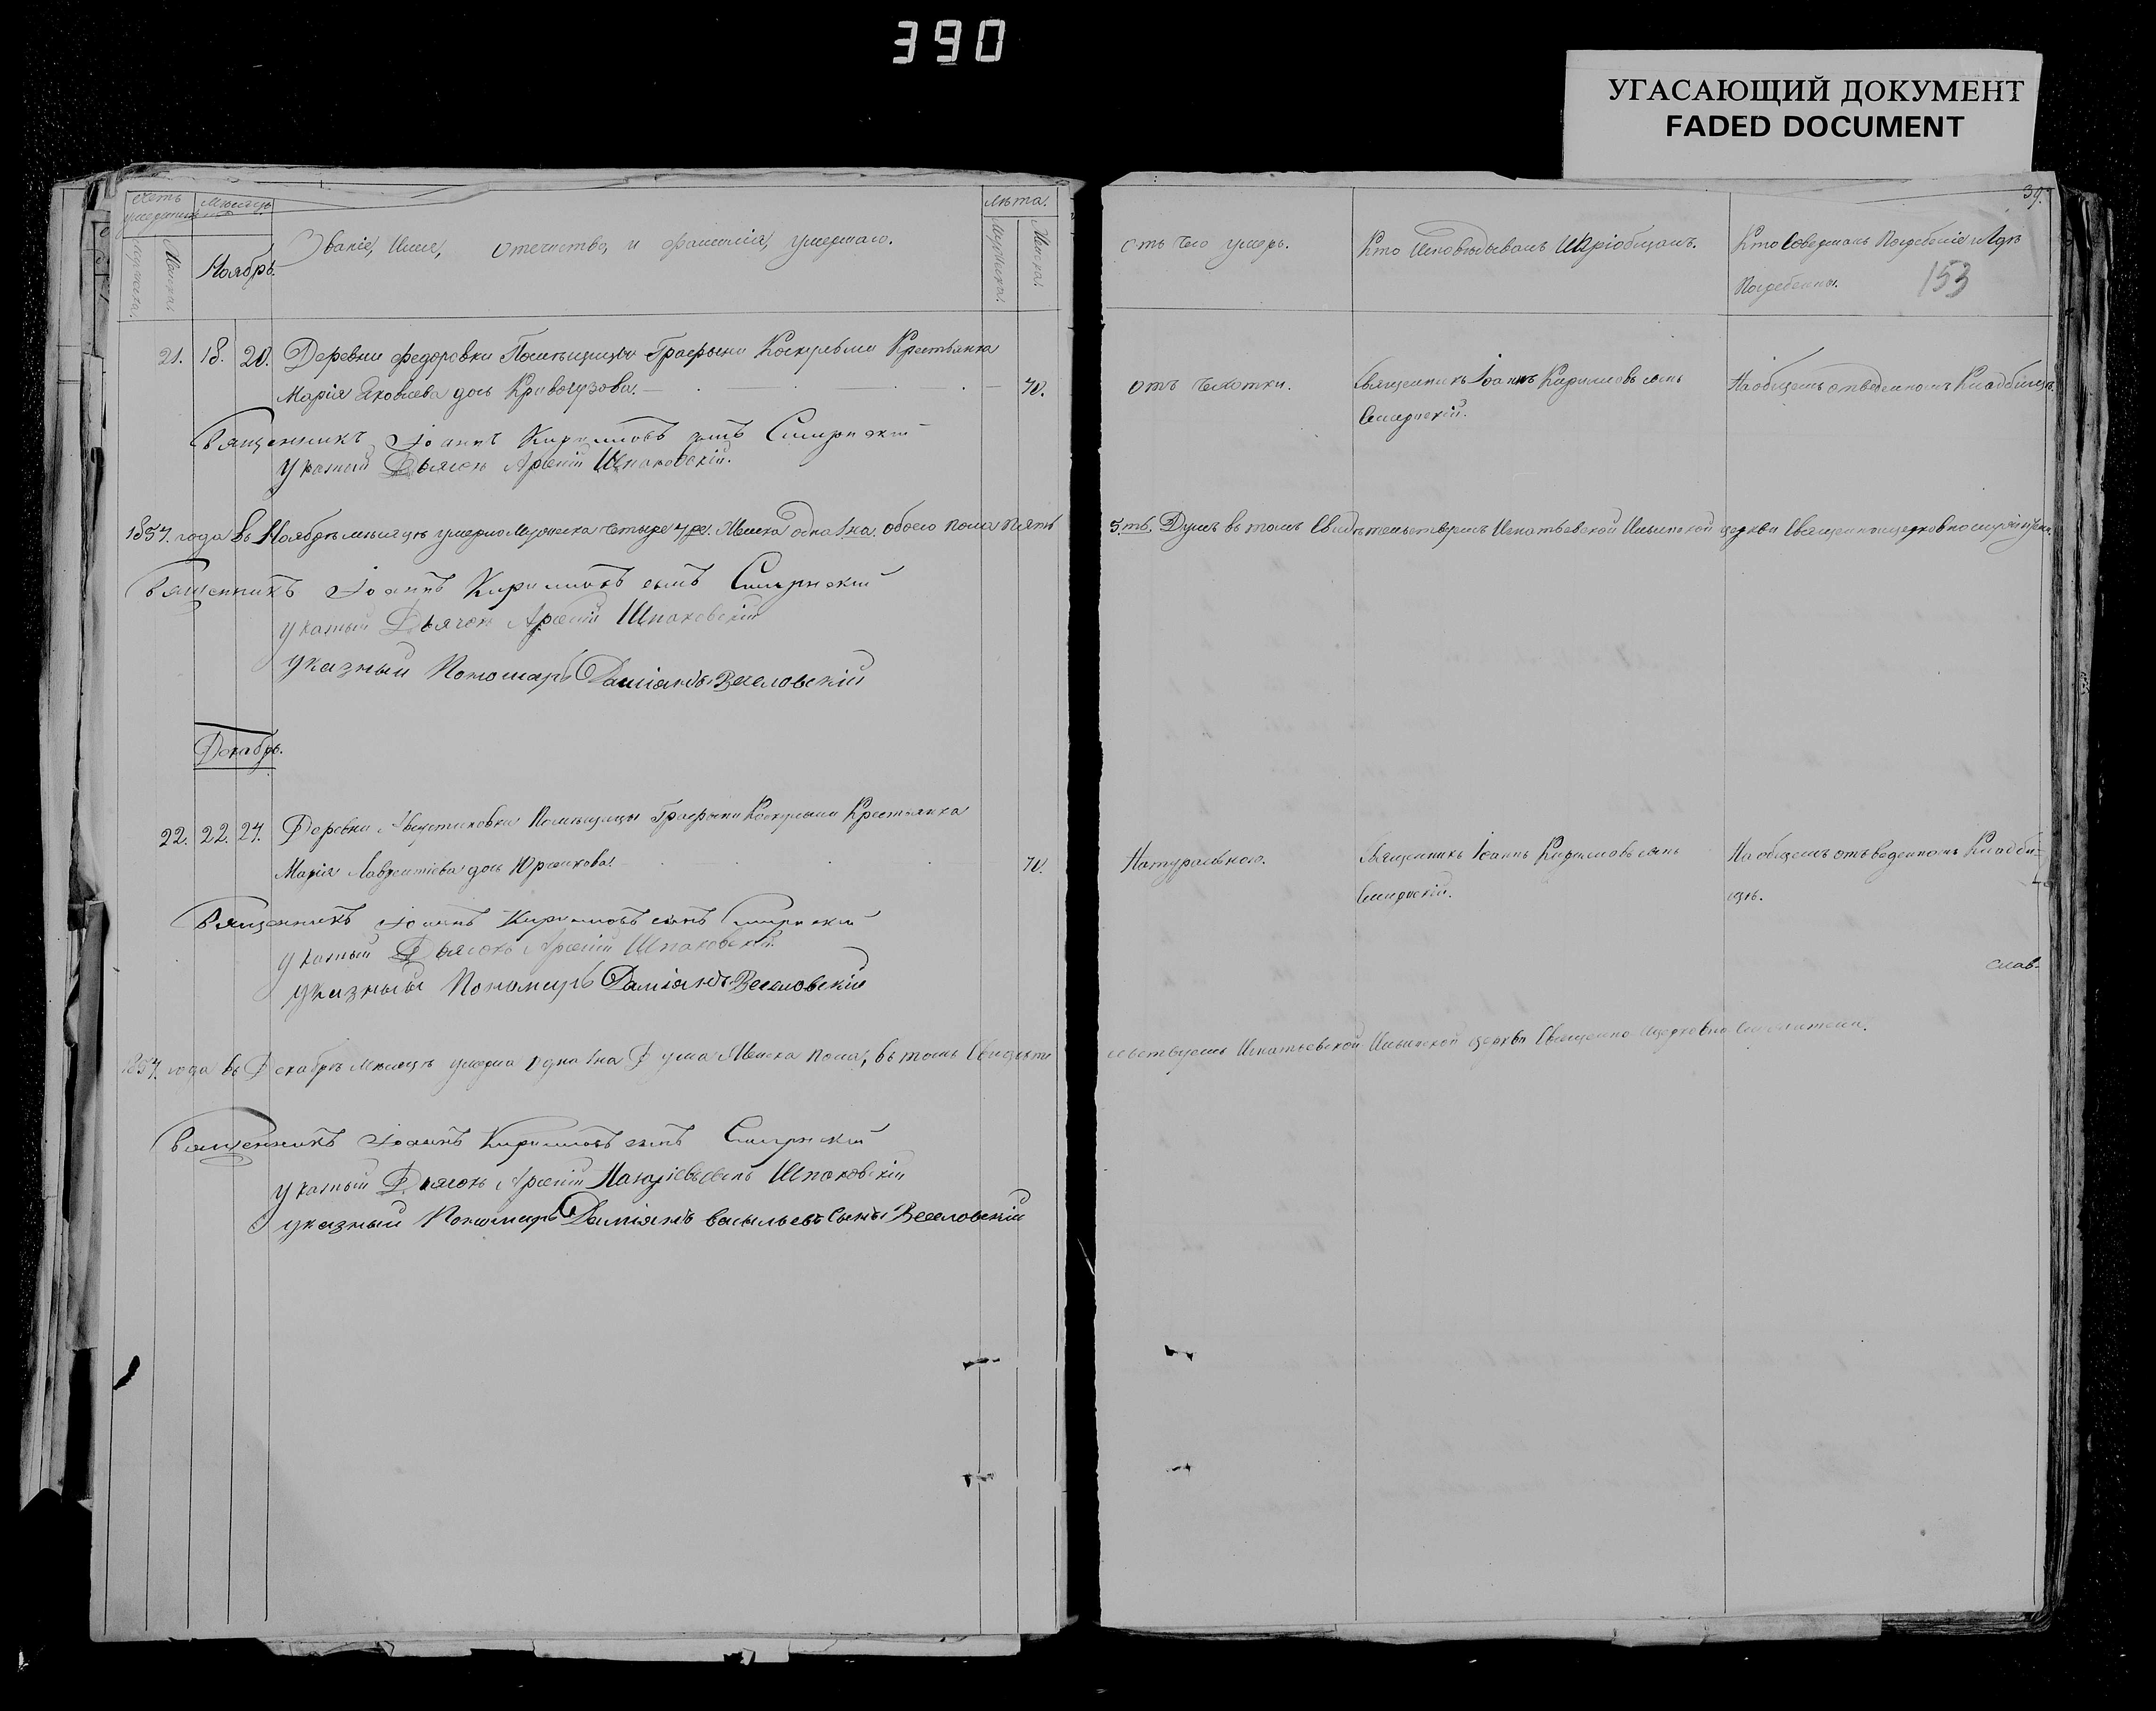 390
УГАСАЮЩИЙ ДОКУМЕНТ
FADED DOCUMENT
39.
153
Счетъ умершихъ
Мѣсяцъ
Ноябрь.
Званіе, Имя, отечество, и фамилія, умершаго.
лѣта.
Мужеска.
Женска.
отъ чего умеръ.
Кто Исповѣдывалъ И Пріобщалъ.
Кто Совершалъ Погребеніе и Гдѣ
Погребены.
21. 18. 20. Деревни Федоровки Помѣщицы Графыни Крестьянка
Марія Яковлева дочь 70.
отъ чахотки.
Священникъ Іоаннъ Кириловъ сынъ
Смирнскій.
На общемъ отведенномъ Кладбищѣ.
Священникъ Іоаннъ Кириловъ сынъ Смирнскій
указный Дьячокъ Арсеній Шпаковскій.
1857. года въ Ноябрѣ мѣсяцѣ умерло Мужеска четыре 4ре. Женска одна 1на. обоего пола пять
5ть. Душъ въ томъ Свидѣтельствуемъ Игнатьевской Ильинской церкви
Священникъ Іоаннъ Кириловъ сынъ Смирнскій
указный Дьячокъ Арсеній Шпаковскій
указный Пономарь Даміанъ Веселовскій
Декабрь.
22. 22. 24. Деревни Помѣщицы Графыни Крестьянка
Марія Лаврентіева дочь 70.
Натуральною.
Священникъ Іоаннъ Кириловъ сынъ
Смирнскій.
На общемъ отъведенномъ Кладби-
щѣ.
Священникъ Іоаннъ Кириловъ сынъ Смирнскій
указный Дьячокъ Арсеній Шпаковскій.
указный Пономарь Даміанъ Веселовскій
1857. года въ Декабрѣ мѣсяцѣ умерла одна 1на Душа Женска пола, въ томъ Свидѣте
льствуемъ Игнатьевской Ильинской церкви Священно Церковно Служители.
Священникъ Іоаннъ Кириловъ сынъ Смирнскій
указный Дьячокъ Арсеній сынъ Шпаковскій
указный Пономарь Даміанъ васильевъ Сынъ Веселовскій